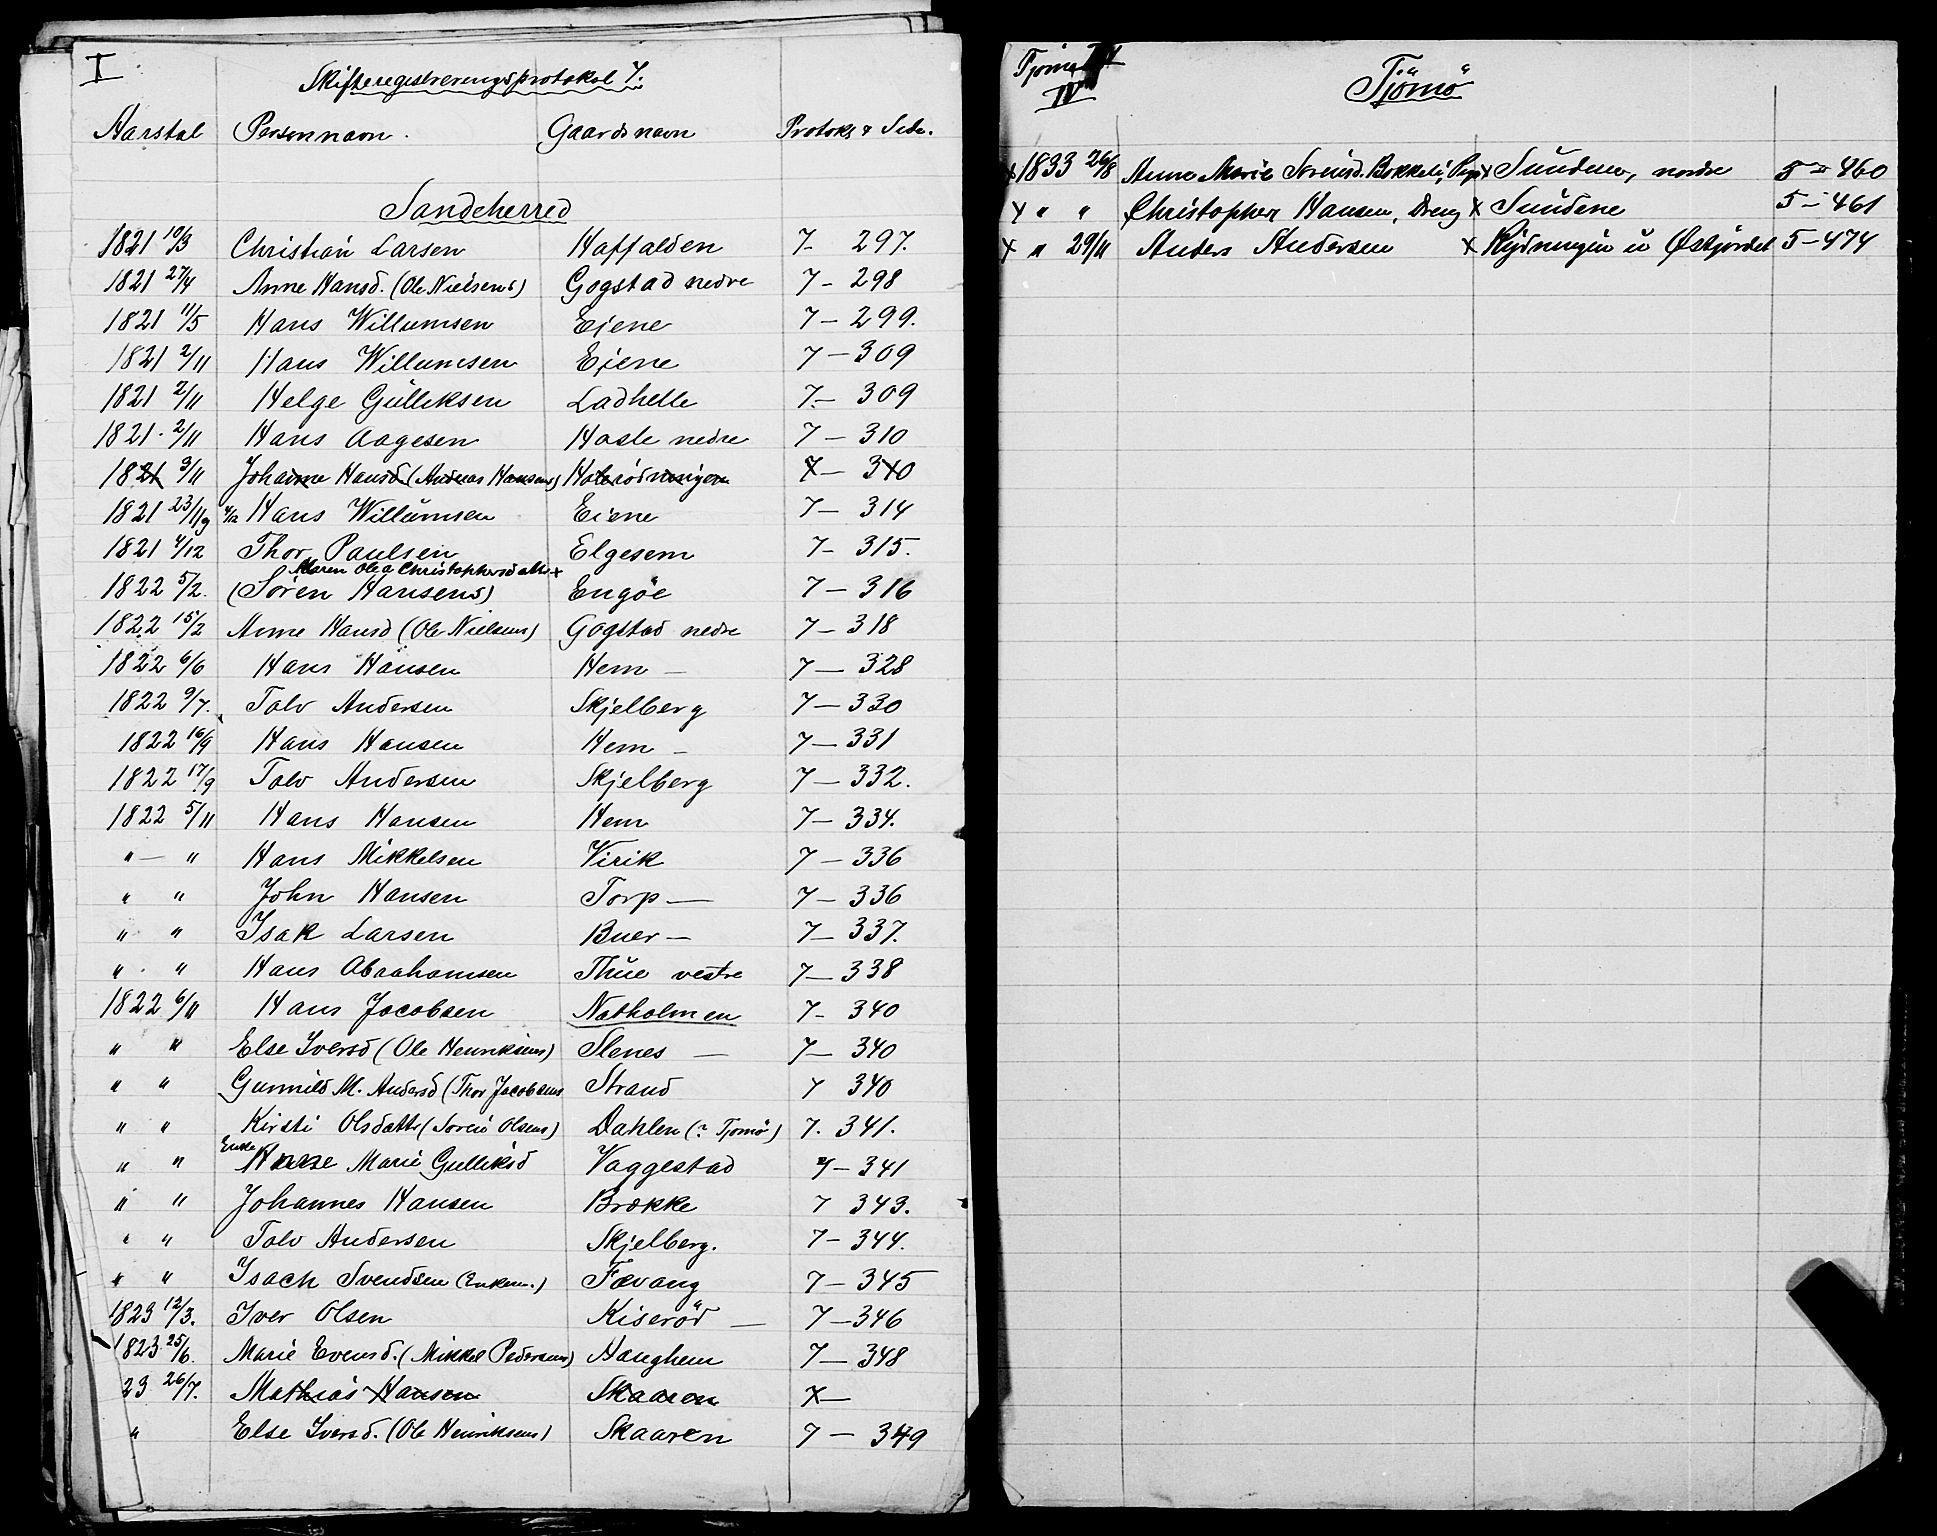 I
Skifteregistreringsprotokol 7.
Aarstal Personnavn. Gaardsnavn Protoks & Side.
Sandeherred
1821 10/3 Christian Larsen Haffalden 7- 297.
1821 27/4 Anne Hansd. (Ole Nielsens) Gogstad nedre 7 - 298
1821 11/5 Hans Willumsen Eiene 7 - 299.
1821 2/11 Hans Willumsen Eiene 7 - 309
1821 2/11 Helge Gulliksen Ladhelle 7 - 309
1821. 2/11 Hans Aagesen Hasle nedre 7 - 310
1821 3/11 Johanne Hansd (Andreas Hansens) 7 - 310
1821 23/11 og 4/12 Hans Willumsen Eiene 7 - 314
1821 4/12 Thor Paulsen Elgesem 7 - 315.
Maren Olea Christophersdatter
1822 5/2. (Sören Hansens) Engöe 7 - 316
1822 15/2 Anne Hansd (Ole Nielsens) Gogstad nedre 7 - 318
1822 6/6 Hans Hansen Hem - 7 - 328
1822 9/7. Talv Andersen Skjelberg 7 - 330
1822 16/9 Hans Hansen Hem - 7 - 331
1822 17/9 Talv Andersen Skjelberg 7 - 332.
1822 5/11 Hans Hansen Hem 7 - 334.
" - " Hans Mikkelsen Virik 7 - 336
" " John Hansen Torp - 7 - 336
" " Isak Larsen Buer - 7 - 337.
" . " Hans Abrahamsen Thue vestre 7 - 338
1822 6/11 Hans Jacobsen Natholmen 7 - 340
" " Else Iversd (Ole Henriksens) Stenes - 7 - 340
" " Gunnild M. Andersd (Thor Jacobsens Strand 7 340
" " Kirsti Olsdatter (Soren Olsens) Dahlen (? Tjomö) 7. 341.
Enke
" " Marie Gulliksd Vaggestad 7 - 341
" " Johannes Hansen Brokke 7 343.
" " Talv Andersen Skjelberg. 7 - 344.
" " Isach Svendsen (Enkem.) Fævang 7 - 345
1823 12/3. Iver Olsen Kiseröd - 7 - 346
1823 25/6. Marie Evensd. (Mikkel Pedersens) Haughem 7 - 348
23 26/7. Mathias Hansen Skaaren 7 -
" Else Iversd. (Ole Henriksens) Skaaren 7 - 349
Tjömö
IV
Tjömö
x 1833 26/8 Anne Marie Sorensd. Bokkeli, Pige x Sundene, nordre 5 = 460
x " " Christopher Hansen, Dreng x Sundene 5 - 461
x " 29/11 Anders Andersen x Rydningen u Østjordet 5 - 474